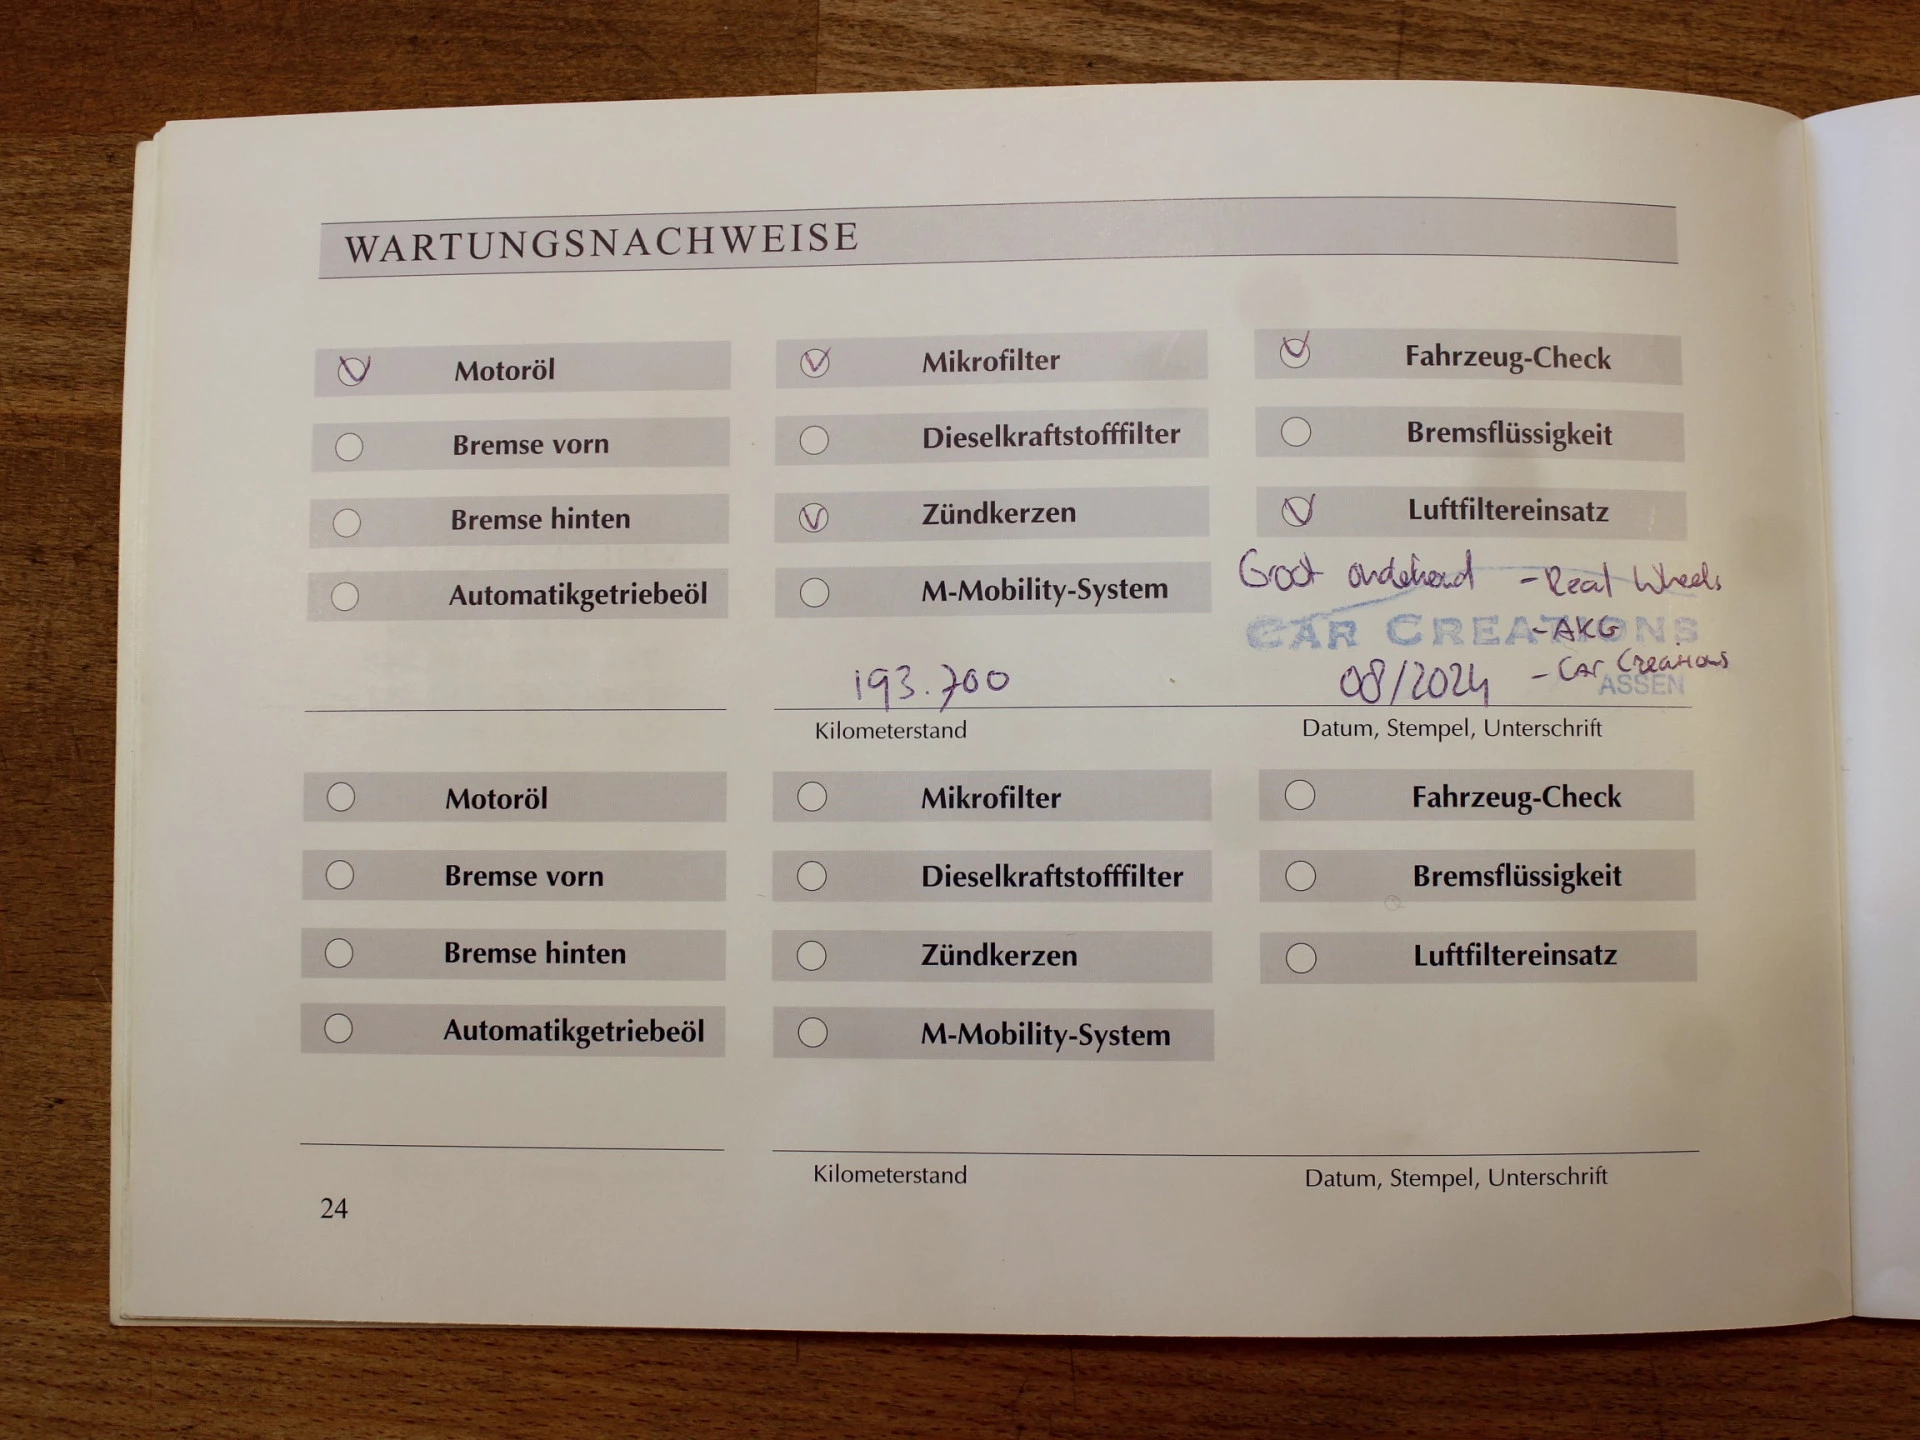 WARTUNGSNACHWEISE
Motoröl Mikrofilter Fahrzeug-Check
Bremse vorn Dieselkraftstofffilter Bremsflüssigkeit
Bremse hinten Zündkerzen Luftfiltereinsatz
Automatikgetriebeöl M-Mobility-System
Groot onderhoud - Real Wheels
CAR CREATIONS
- AKG
- Car Creations
ASSEN
193.700 08/2024
Kilometerstand Datum, Stempel, Unterschrift
Motoröl Mikrofilter Fahrzeug-Check
Bremse vorn Dieselkraftstofffilter Bremsflüssigkeit
Bremse hinten Zündkerzen Luftfiltereinsatz
Automatikgetriebeöl M-Mobility-System
Kilometerstand Datum, Stempel, Unterschrift
24